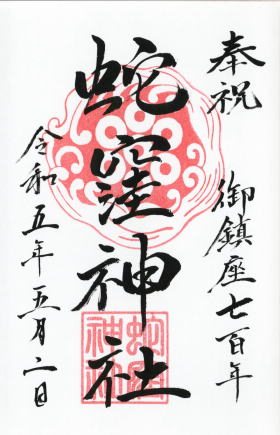 奉祝
御鎮座七百年
蛇窪神社
令和五年五月二日
蛇窪神社